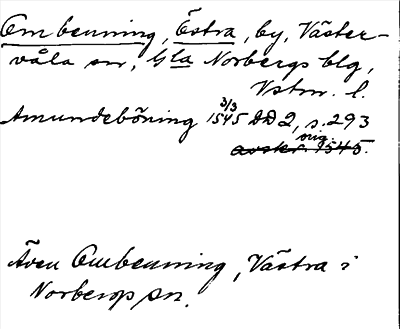 Ombenning, Östra, by, Väster-
våla sn, Gla Norbergs blg,
Vstm. l.
Amundeböning 3/3 1545 DD2, s. 293
orig.
avskr. 1545.
Även Ombenning, Västra i
Norbergs sn.